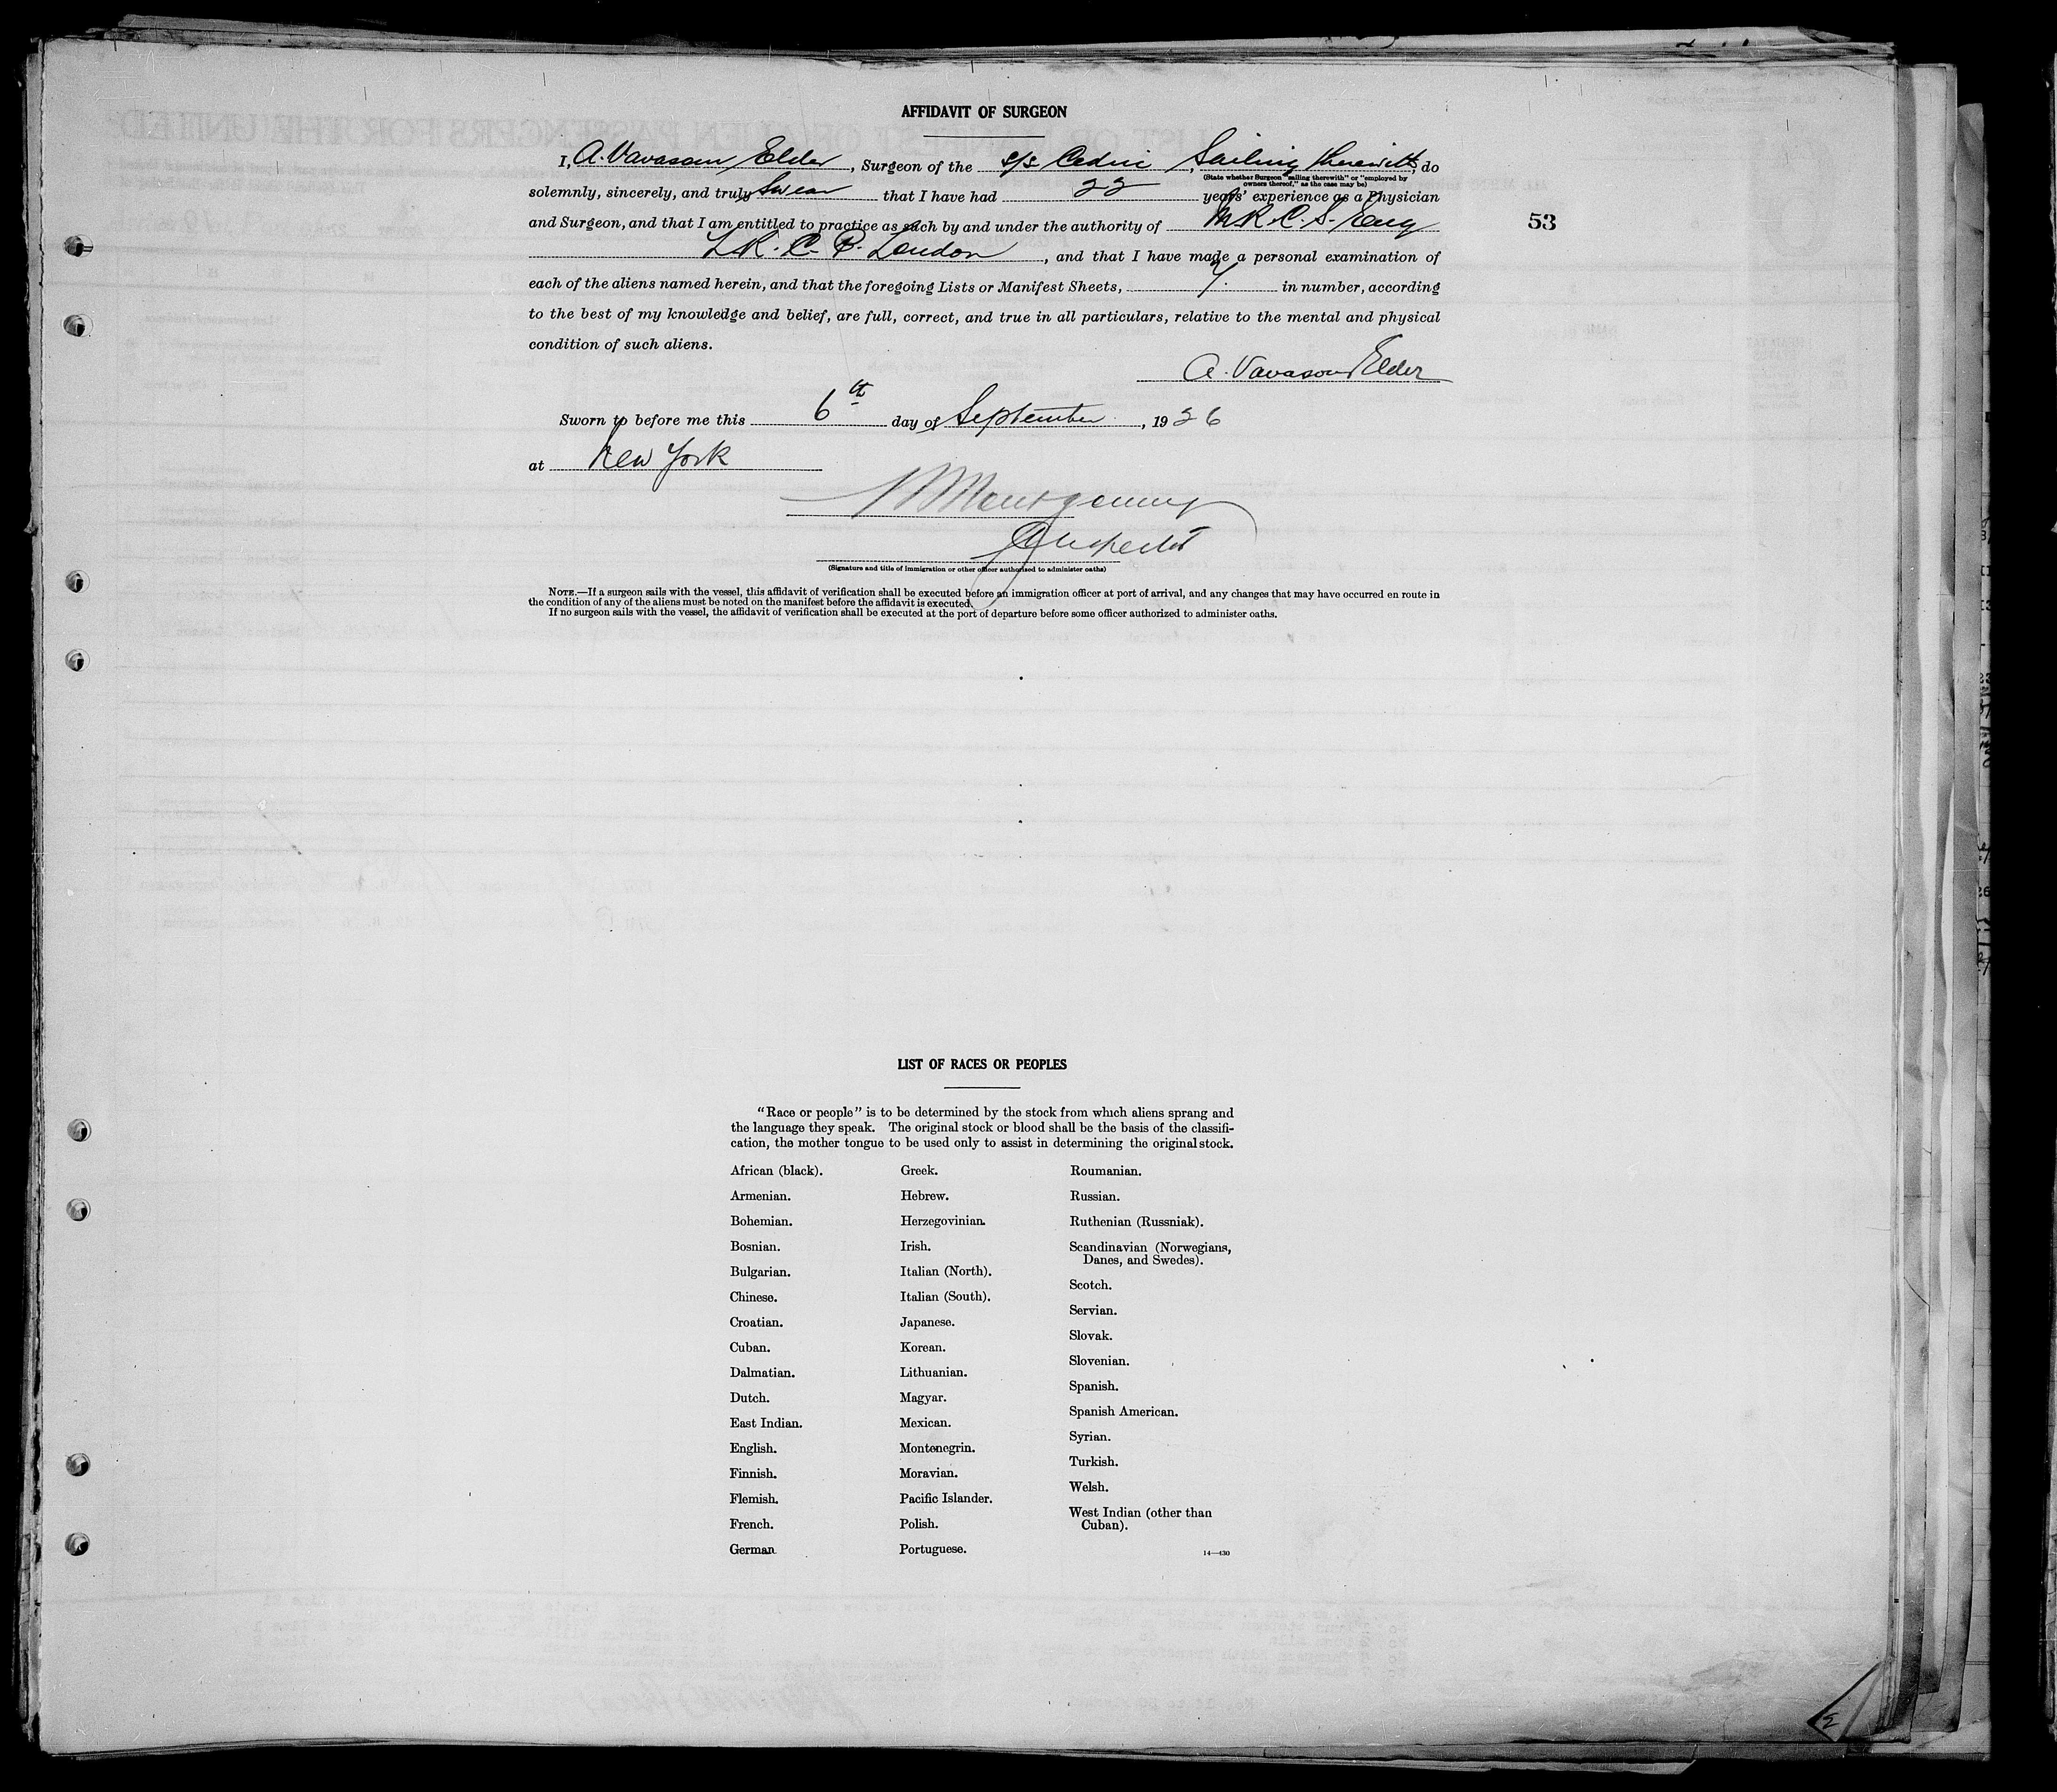 AFFIDAVIT OF SURGEON
I, A. Vavasour Elder, Surgeon of the s/s Cedric, Sailing therewith, do
(State whether Surgeon "sailing therewith" or "employed by
owners thereof," as the case may be)
solemnly, sincerely, and truly Swear that I have had 22 years' experience as a Physician
and Surgeon, and that I am entitled to practice as such by and under the authority of M.R.C.S. Eng
53
L.R.C.P. London, and that I have made a personal examination of
each of the aliens named herein, and that the foregoing Lists or Manifest Sheets, 7. in number, according
to the best of my knowledge and belief, are full, correct, and true in all particulars, relative to the mental and physical
condition of such aliens.
A. Vavasour Elder
Sworn to before me this 6th day of September, 1926
at New York
Montgomery
Inspector
(Signature and title of immigration or other officer authorized to administer oaths)
NOTE.—If a surgeon sails with the vessel, this affidavit of verification shall be executed before an immigration officer at port of arrival, and any changes that may have occurred en route in
the condition of any of the aliens must be noted on the manifest before the affidavit is executed.
If no surgeon sails with the vessel, the affidavit of verification shall be executed at the port of departure before some officer authorized to administer oaths.
LIST OF RACES OR PEOPLES
"Race or people" is to be determined by the stock from which aliens sprang and
the language they speak. The original stock or blood shall be the basis of the classifi-
cation, the mother tongue to be used only to assist in determining the original stock.
African (black).
Armenian.
Bohemian.
Bosnian.
Bulgarian.
Chinese.
Croatian.
Cuban.
Dalmatian.
Dutch.
East Indian.
English.
Finnish.
Flemish.
French.
German
Greek.
Hebrew.
Herzegovinian.
Irish.
Italian (North).
Italian (South).
Japanese.
Korean.
Lithuanian.
Magyar.
Mexican.
Montenegrin.
Moravian.
Pacific Islander.
Polish.
Portuguese.
Roumanian.
Russian.
Ruthenian (Russniak).
Scandinavian (Norwegians,
Danes, and Swedes).
Scotch.
Servian.
Slovak.
Slovenian.
Spanish.
Spanish American.
Syrian.
Turkish.
Welsh.
West Indian (other than
Cuban).
14—430